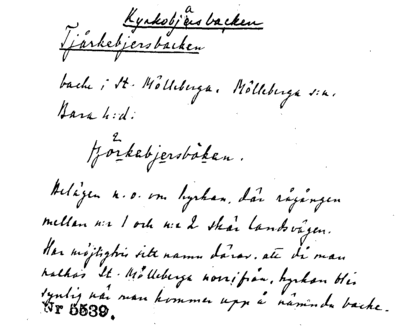 Kyrkobjärsbacken
Tjärkebjersbacken
backe i St. Mölleberga, Mölleberga s:n.
Bara h:d:
tjörkebjersbaken.
Belägen n.o. om kyrkan, där rågången
mellan n:r 1 och n:r 2 skär landsvägen.
Har möjligtvis sitt namn därav, att då man
nalkas St. Mölleberga norrifrån, kyrkan blir
synlig när man kommer upp å nämnda backe.
Nr 5539.